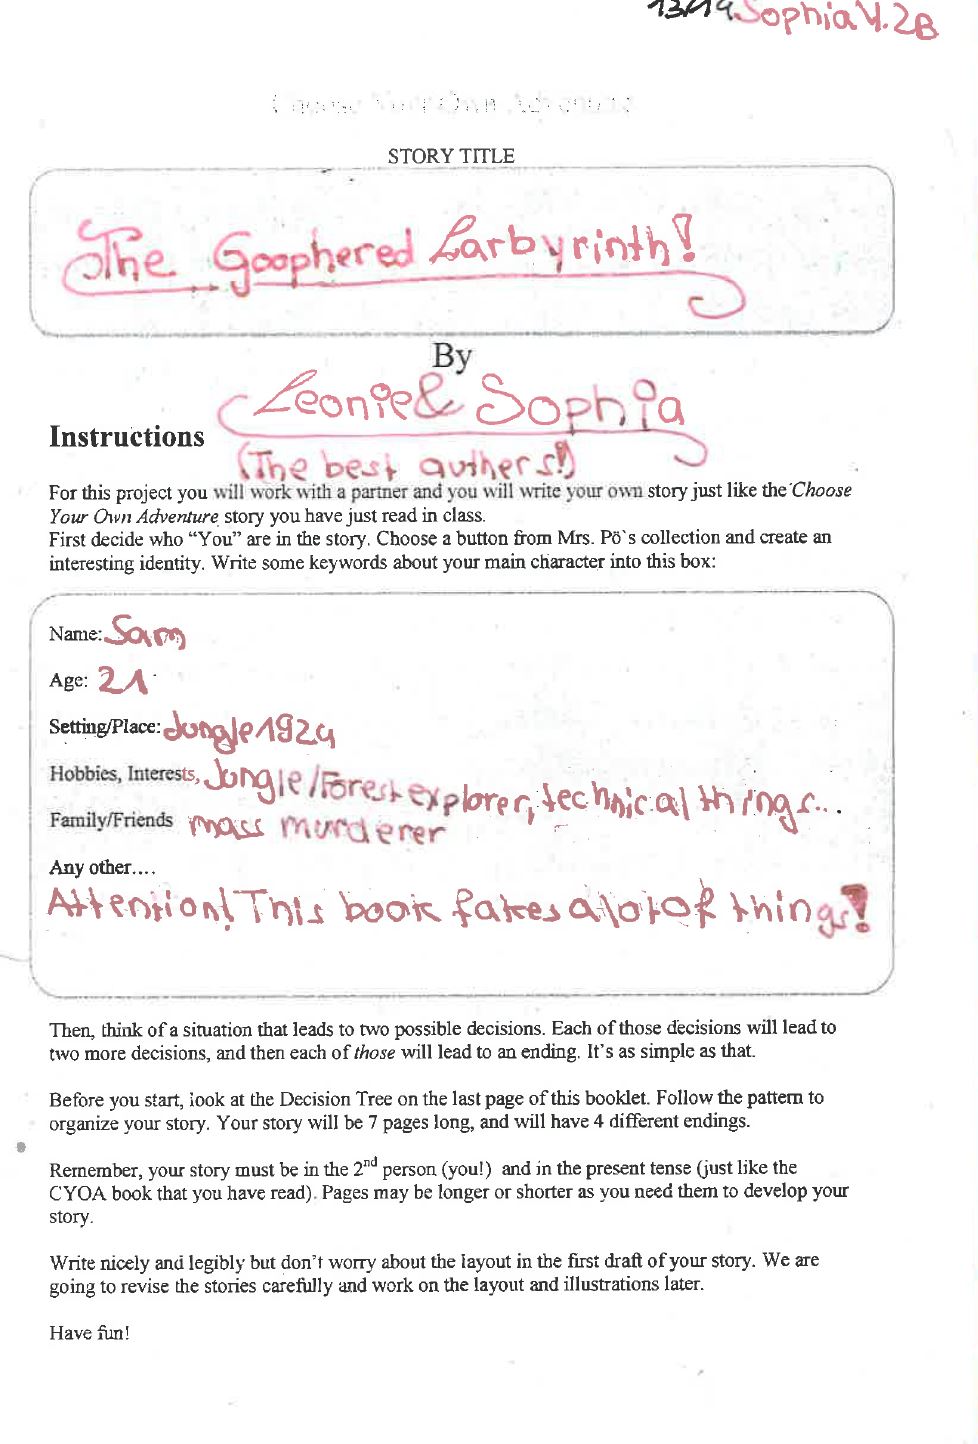 13/14 Sophia V. 2B
Choose Your Own Adventure
STORY TITLE
The Goophered Larbyrinth!
By
Leonie & Sophia
Instructions
(The best authers!)
For this project you will work with a partner and you will write your own story just like the Choose
Your Own Adventure story you have just read in class.
First decide who “You” are in the story. Choose a button from Mrs. Pö`s collection and create an
interesting identity. Write some keywords about your main character into this box:
Name: Sam
Age: 21
Setting/Place: Jungle 1924
Hobbies, Interests, Jungle/Forest explorer, technical things...
Family/Friends mass murderer
Any other....
Attention! This book fakes a lot of things!
Then, think of a situation that leads to two possible decisions. Each of those decisions will lead to
two more decisions, and then each of those will lead to an ending. It’s as simple as that.
Before you start, look at the Decision Tree on the last page of this booklet. Follow the pattern to
organize your story. Your story will be 7 pages long, and will have 4 different endings.
Remember, your story must be in the 2nd person (you!) and in the present tense (just like the
CYOA book that you have read). Pages may be longer or shorter as you need them to develop your
story.
Write nicely and legibly but don’t worry about the layout in the first draft of your story. We are
going to revise the stories carefully and work on the layout and illustrations later.
Have fun!